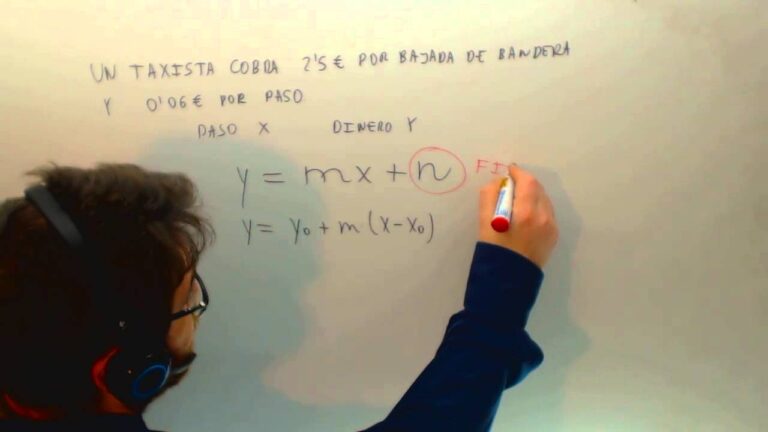 UN TAXISTA COBRA 2'5 € POR BAJADA DE BANDERA
Y 0'06 € POR PASO
PASO X DINERO Y
y = mx + n FI
y = y₀ + m (x-x₀)